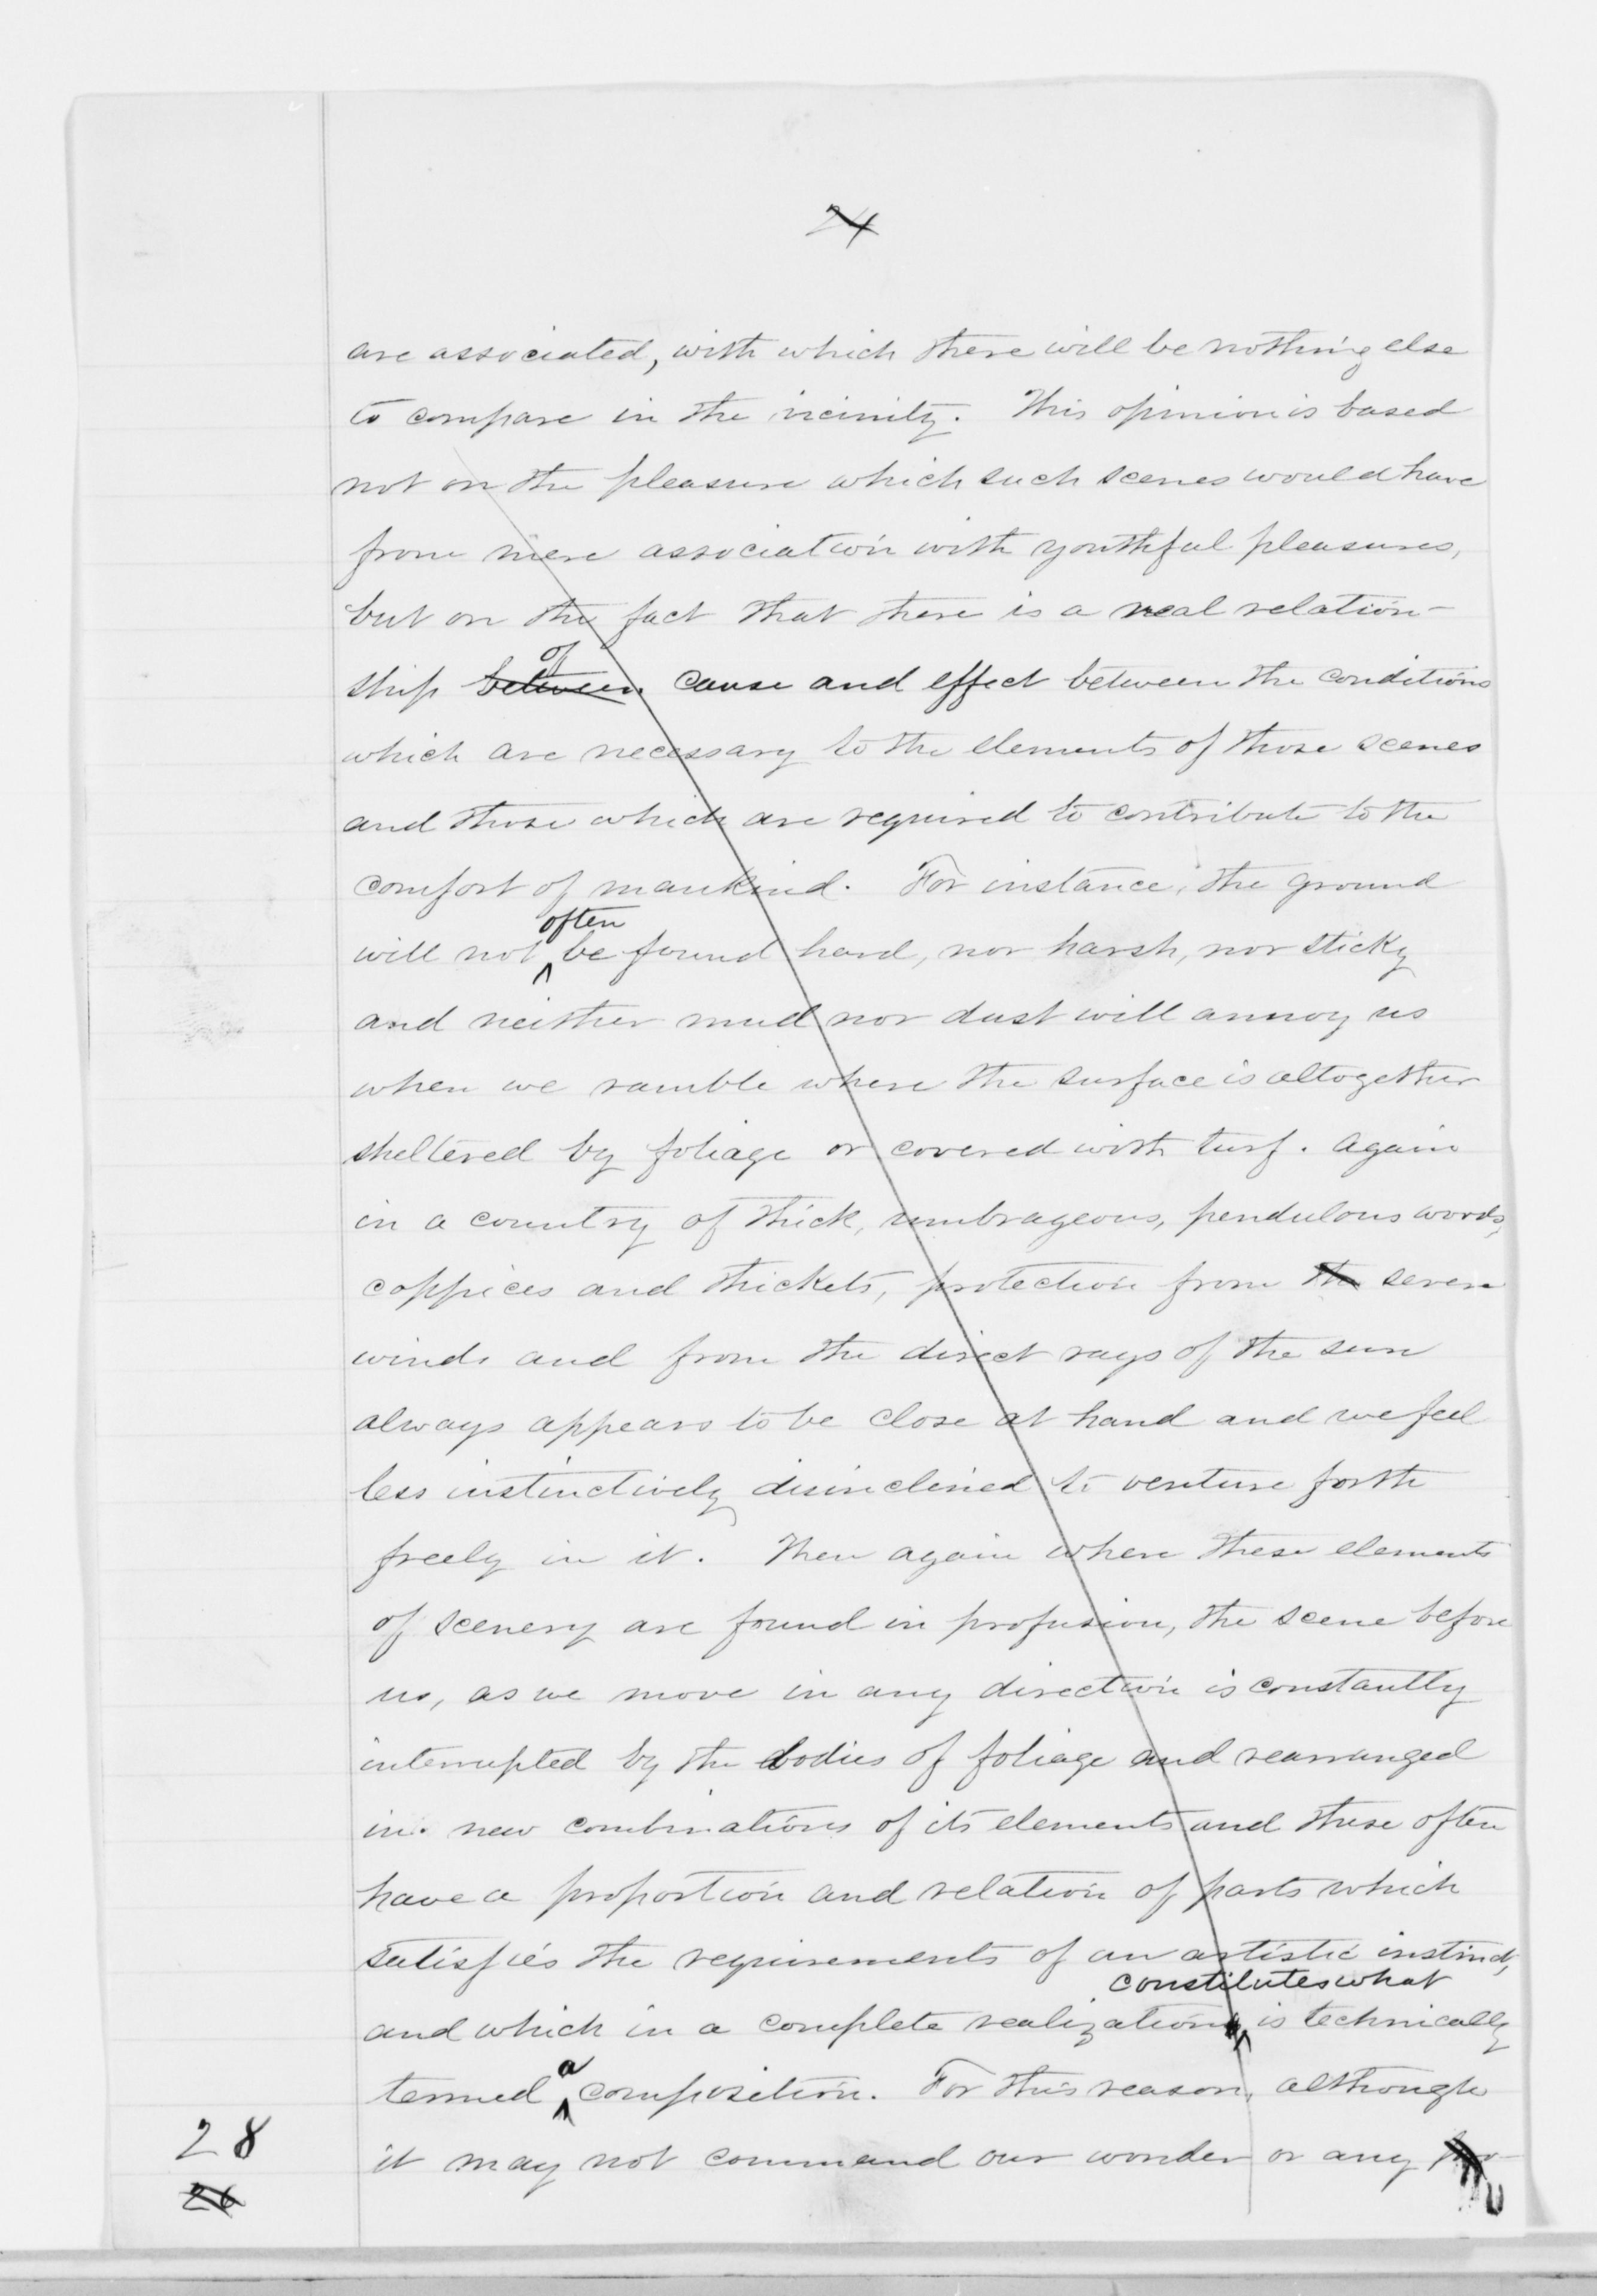 24
are associated, with which there will be nothing else
to compare in the vicinity. This opinion is based
not on the pleasure which such scenes would have
from mere association with youthful pleasures,
but on the fact that there is a real relation-
of
ship between cause and effect between the conditions
which are necessary to the elements of those scenes
and those which are required to contribute to the
comfort of mankind. For instance, the ground
often
will not be found hard, nor harsh, nor sticky
and neither mud nor dust will annoy us
when we ramble where the surface is altogether
sheltered by foliage or covered with turf. Again
in a country of thick, umbrageous, pendulous woods,
coppices and thickets, protection from the severe
winds and from the direct rays of the sun
always appears to be close at hand and we feel
less instinctively disinclined to venture forth
freely in it. Then again where these elements
of scenery are found in profusion, the scene before
us, as we move in any direction is constantly
interrupted by the bodies of foliage and rearranged
in new combinations of its elements and these often
have a proportion and relation of parts which
satisfies the requirements of an artistic instinct,
constitutes what
and which in a complete realization is technically
a
termed composition. For this reason, although
28
it may not command our wonder or any
26